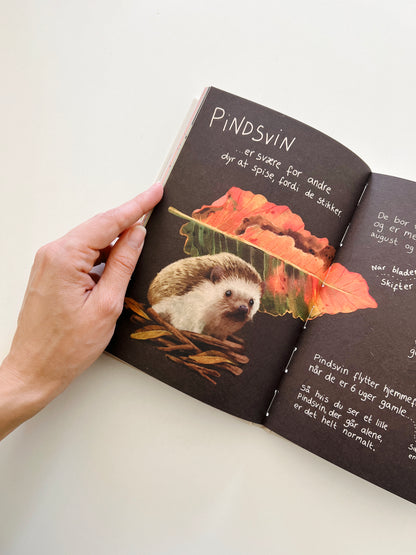 PiNDSViN
...er svære for andre
dyr at spise, fordi de stikker
De bor
og er me
august og
Når blade
skifter
Pindsvin flytter hjemmef
når de er 6 uger gamle
Så hvis du ser et lille
pindsvin, der går alene,
er det helt normalt.